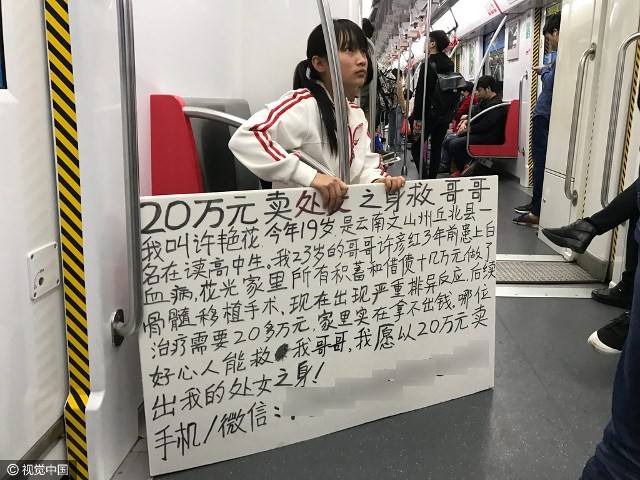 20万元卖处女之身救哥哥
我叫许艳花今年19岁是云南文山州丘北县一
名在读高中生,我23岁的哥哥许彦红3年前患上白
血病,花光家里所有积蓄和借债十几万元做了
骨髓移植手术,现在出现严重排异反应,后续
治疗需要20多万元,家里实在拿不出钱,哪位
好心人能救我哥哥,我愿以20万元卖
出我的处女之身!
手机/微信:
©视觉中国